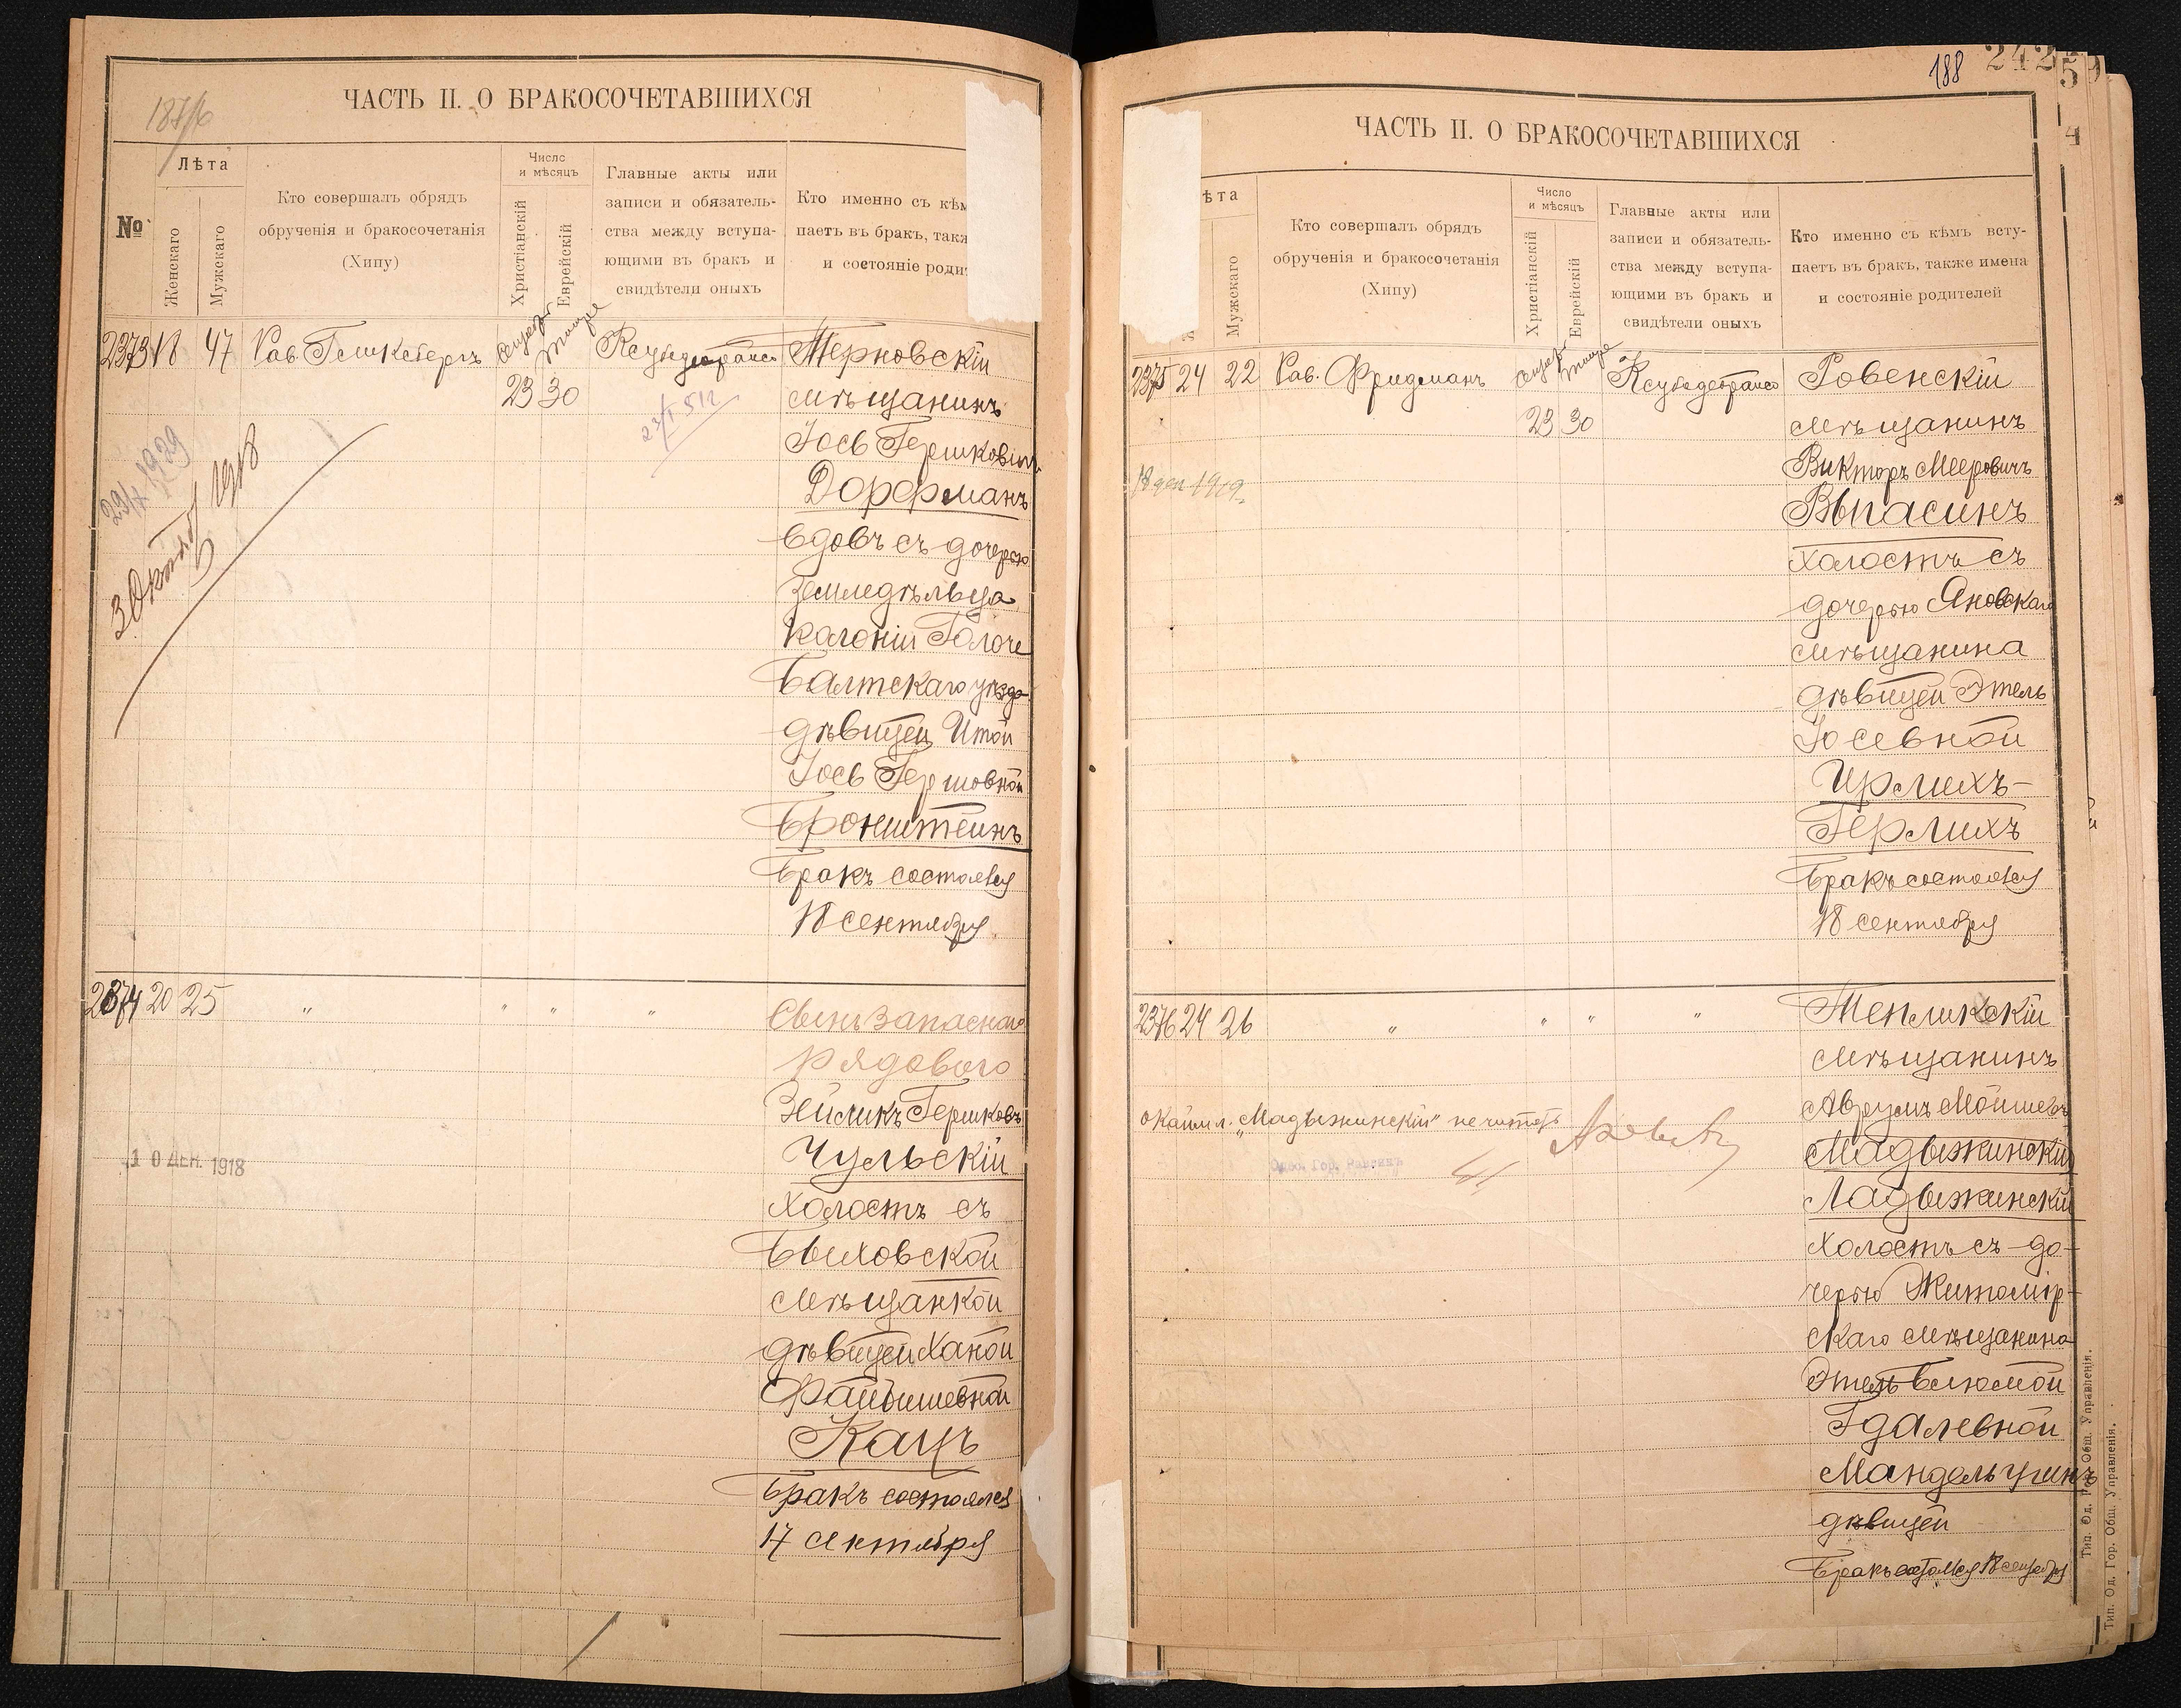 187/6
ЧАСТЬ II. О БРАКОСОЧЕТАВШИХСЯ
№
Лѣта
Женскаго
Мужскаго
Кто совершалъ обрядъ
обрученія и бракосочетанія
(Хипу)
Число
и мѣсяцъ
Христіанскій
Еврейскій
Главные акты или
записи и обязатель-
ства между вступа-
ющими въ бракъ и
свидѣтели оныхъ
Кто именно съ кѣм
паетъ въ бракъ, такж
и состояніе родит
2373 18 47 Рав. Тишре Ксуба
23 30
Терновскій
мѣщанинъ
Іось Гершковичъ
Дорфманъ
вдовъ съ дочерью
земледѣльца
колоніи
Балтскаго уѣзда
дѣвицей Итой
Іось Гершовной
Бронштейнъ
Бракъ состоялся
18 сентября
3 Октяб 1918
2374 20 25 " " " "
Сынъ запаснаго
рядового
Зейликъ Гершковъ
Чульскій
холостъ съ
Быховской
мѣщанкой
дѣвицей Ханой
Файвишевной
Кацъ
Бракъ состоялся
17 сентября
10 ДЕК. 1918
188
ЧАСТЬ II. О БРАКОСОЧЕТАВШИХСЯ
ѣта
Мужскаго
Кто совершалъ обрядъ
обрученія и бракосочетанія
(Хипу)
Число
и мѣсяцъ
Христіанскій
Еврейскій
Главные акты или
записи и обязатель-
ства между вступа-
ющими въ бракъ и
свидѣтели оныхъ
Кто именно съ кѣмъ всту-
паетъ въ бракъ, также имена
и состояніе родителей
2375 24 22 Рав. Фридманъ Тишре
23 30
Ровенскій
мѣщанинъ
Викторъ Мееровичъ
Выпасинъ
холостъ съ
дочерью Яновскаго
мѣщанина
дѣвицей Этель
Іосевной
Ирлихъ-
Герлихъ
Бракъ состоялся
18 сентября
2376 24 26 " " " "
Тепликскій
мѣщанинъ
Аврумъ Мойшевъ
Мадыжинскій
Ладыжинскій
холостъ съ до-
черью Житомір-
скаго мѣщанина
Этель Блюмой
Гдалевной
Мандельцугинъ
дѣвицей
Бракъ состоялся 18 сентября
"Мадыжинскій" не читать
Одес. Гор. Раввинъ
Тип. Од. Гор. Общ. Управленія.
Тип. Од. Гор. Общ. Управленія.